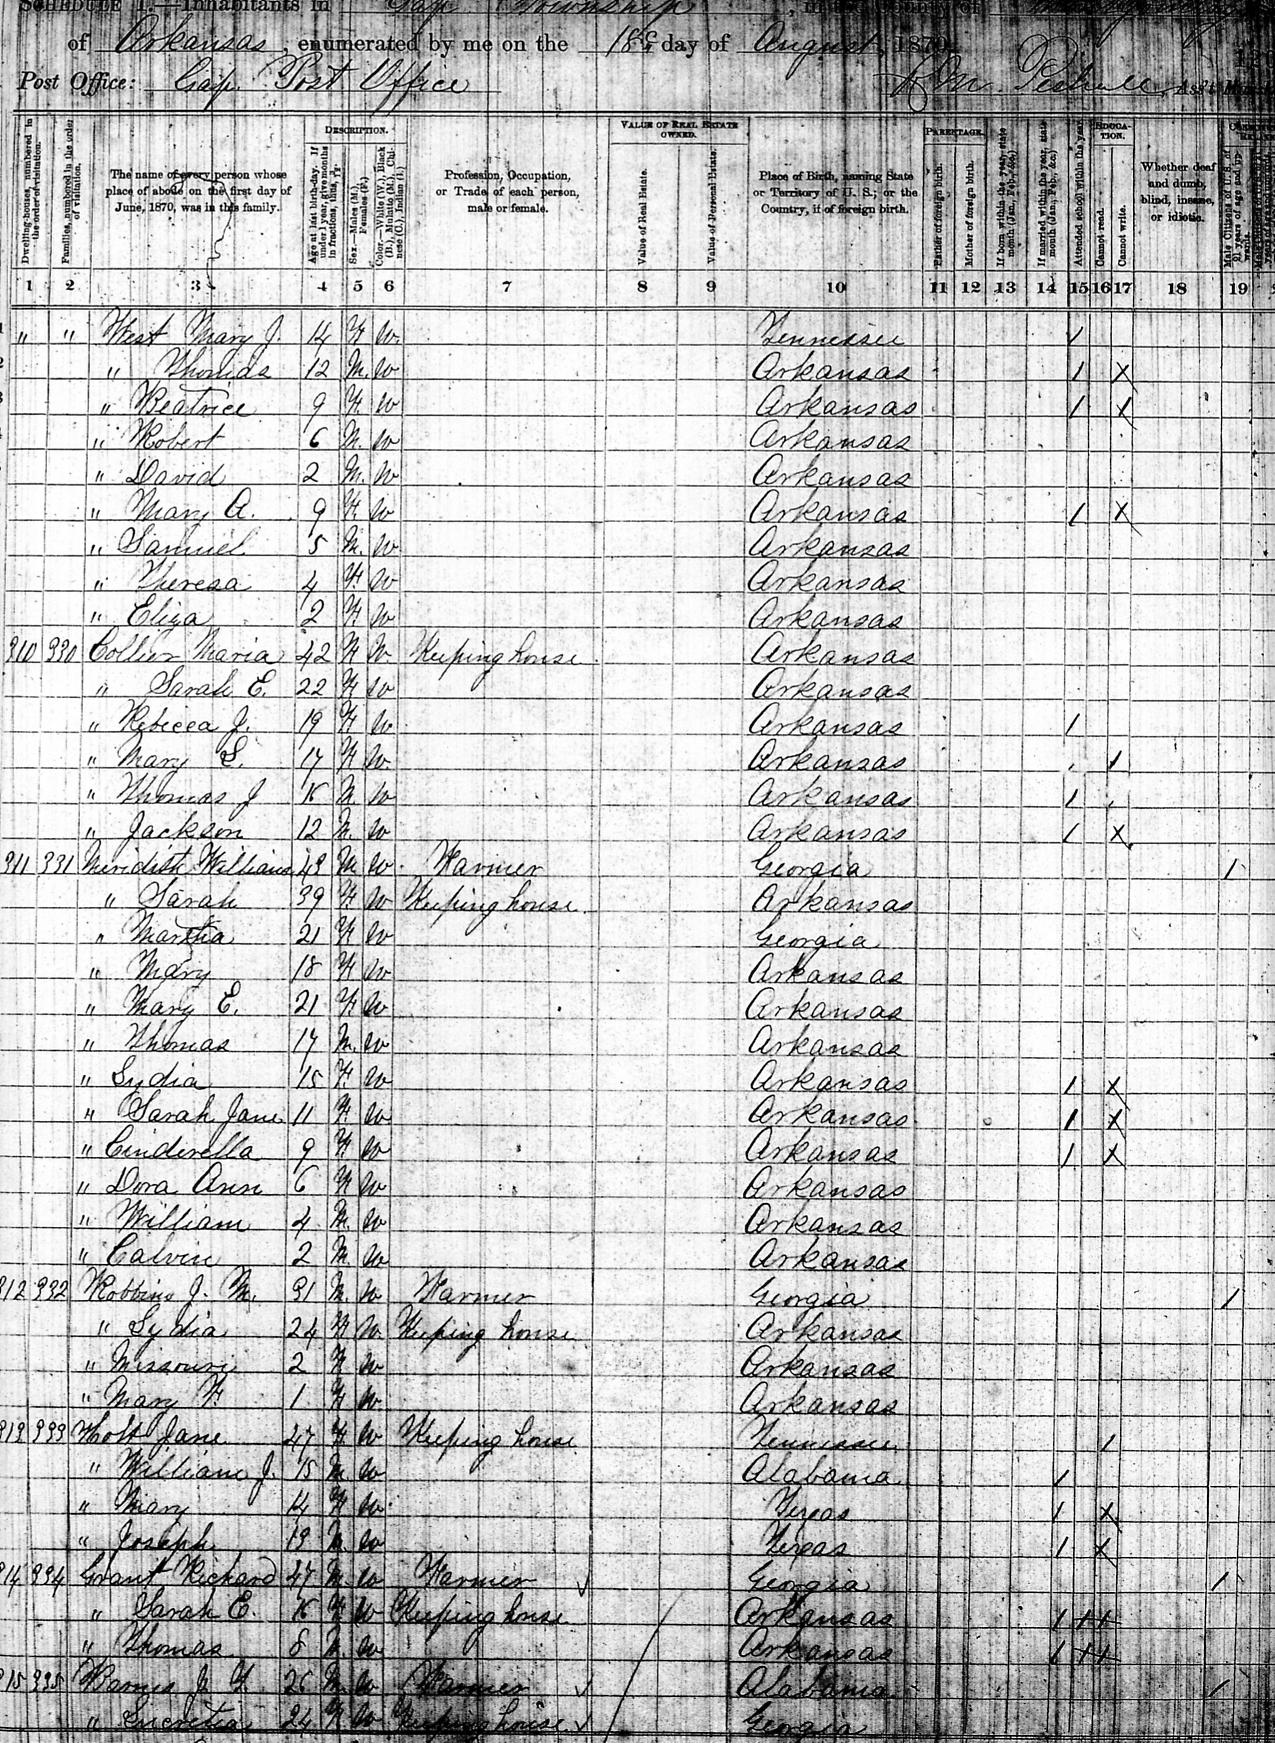 SCHEDULE 1.—Inhabitants in Gap Township, in the County of
of Arkansas, enumerated by me on the 18th day of August, 1870.
Post Office: Gap Post Office Ass't
DESCRIPTION. VALUE OF REAL ESTATE OWNED. PARENTAGE. EDUCATION.
Dwelling-houses, numbered in the order of visitation. Families, numbered in the order of visitation. The name of every person whose place of abode on the first day of June, 1870, was in this family. Age at last birth-day. If under 1 year, give months in fractions, thus, Sex.—Males (M.), Females (F.). Color.—White (W.), Black (B.), Mulatto (M.), Chinese (C.), Indian (I.). Profession, Occupation, or Trade of each person, male or female. Value of Real Estate. Value of Personal Estate. Place of Birth, naming State or Territory of U. S.; or the Country, if of foreign birth. Father of foreign birth. Mother of foreign birth. If born within the year, state month (Jan., Feb., &c.) If married within the year, state month (Jan., Feb., &c.) Attended school within the year. Cannot read. Cannot write. Whether deaf and dumb, blind, insane, or idiotic. Male Citizens of U. S. of 21 years of age and upwards.
1 2 3 4 5 6 7 8 9 10 11 12 13 14 15 16 17 18 19
" " West Mary J. 14 F W Tennessee /
" Thomas 12 M W Arkansas / X
" Beatrice 9 F W Arkansas / X
" Robert 6 M W Arkansas
" David 2 M W Arkansas
" Mary A. 9 F W Arkansas / X
" Samuel 5 M W Arkansas
" Theresa 4 F W Arkansas
" Eliza 2 F W Arkansas
310 330 Collier Maria 42 F W Keeping house Arkansas
" Sarah E. 22 F W Arkansas
" Rebecca J. 19 F W Arkansas /
" Mary S. 17 F W Arkansas /
" Thomas J 15 M W Arkansas /
" Jackson 12 M W Arkansas / X
311 331 Meridith William 43 M W Farmer Georgia /
" Sarah 39 F W Keeping house Arkansas
" Martha 21 F W Georgia
" Mary 18 F W Arkansas
" Mary E. 21 F W Arkansas
" Thomas 17 M W Arkansas
" Lydia 15 F W Arkansas / X
" Sarah Jane 11 F W Arkansas / X
" Cinderella 9 F W Arkansas / X
" Dora Ann 6 F W Arkansas
" William 4 M W Arkansas
" Calvin 2 M W Arkansas
312 332 Robbins J. M. 31 M W Farmer Georgia /
" Lydia 24 F W Keeping house Arkansas
" Missouri 2 F W Arkansas
" Mary F. 1 F W Arkansas
313 333 Holt Jane 47 F W Keeping house Tennessee /
" William J. 15 M W Alabama /
" Mary 14 F W Texas / X
" Joseph 13 M W Texas / X
314 334 Grant Richard 47 M W Farmer Georgia /
" Sarah E. 16 F W Keeping house Arkansas / X X
" Thomas 8 M W Arkansas / X X
315 335 Barnes J. 26 M W Farmer Alabama /
" Lucretia 24 F W Keeping house Georgia